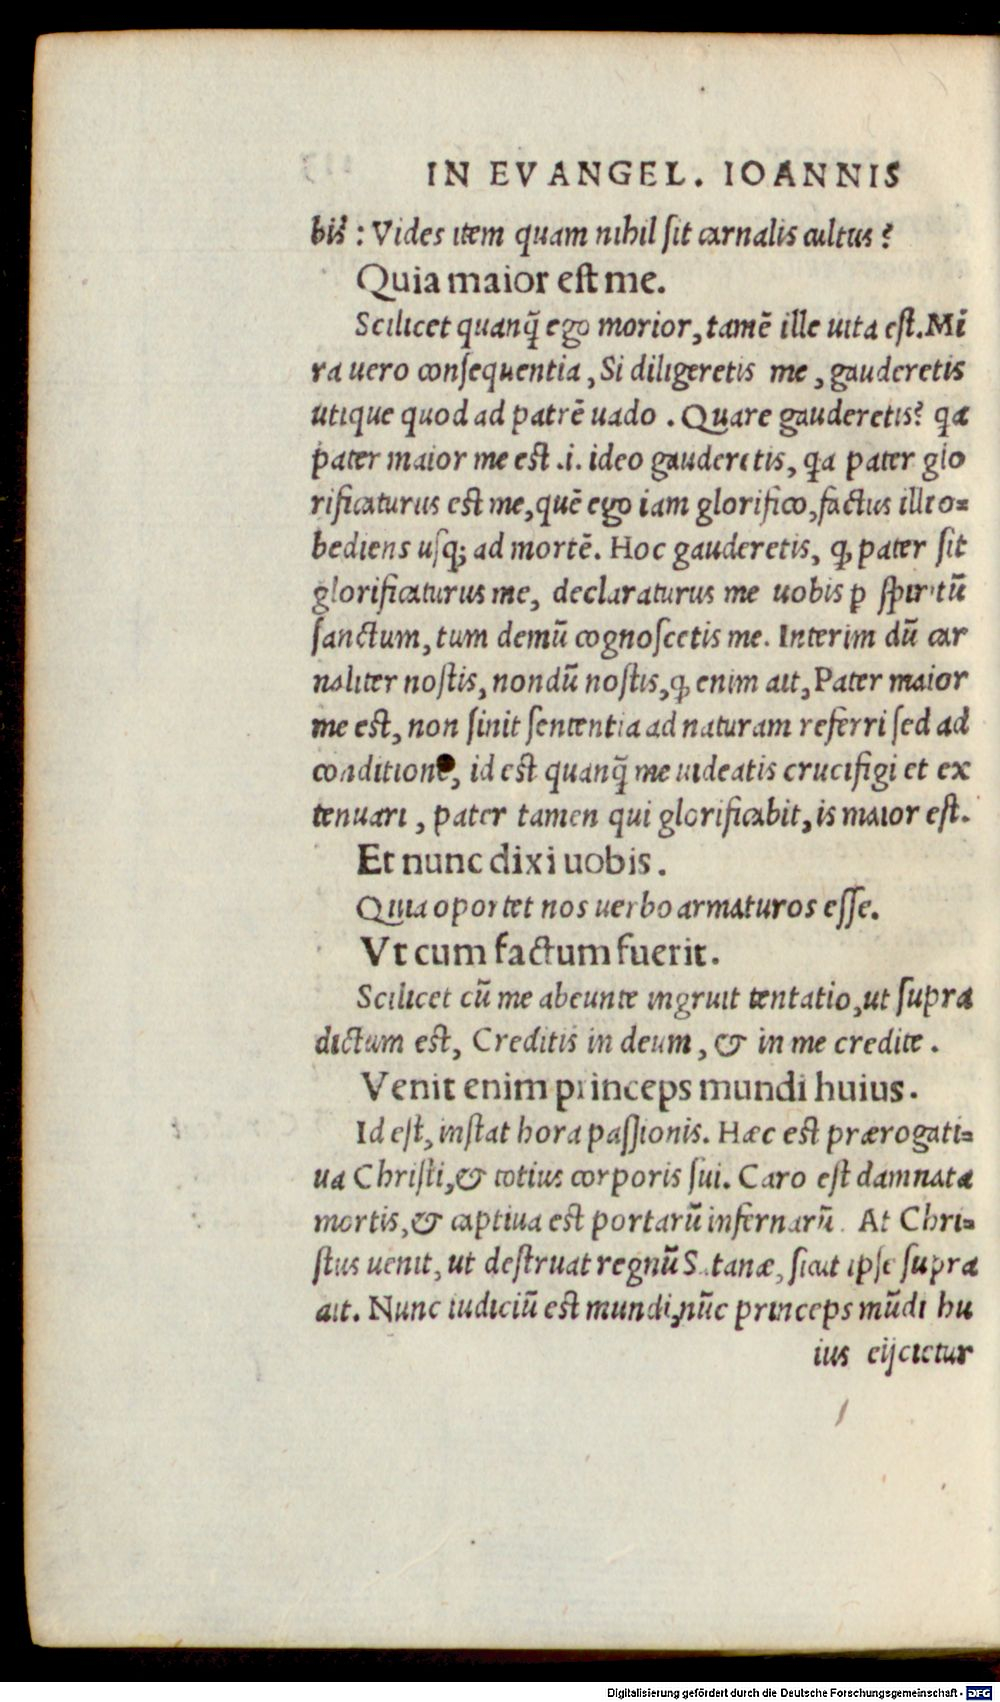 IN EVANGEL. IOANNIS
bis̃ : Vides item quam nihil ſit carnalis cultus ?
Quia maior eſt me.
Scilicet quanq̃ ego morior, tamē ille uita eſt. Mi
ra uero conſequentia, Si diligeretis me, gauderetis
utique quod ad patrē uado . Quare gauderetis? qa
pater maior me est .i. ideo gauderetis, qa pater glo
rificaturus est me, quē ego iam glorifico, factus illi o=
bediens uſq; ad mortē. Hoc gauderetis, ꝙ pater ſit
glorificaturus me, declaraturus me uobis ꝑ ſpiritū
ſanctum, tum demū cognoſcetis me. Interim dū car
naliter noſtis, nondū noſtis, ꝙ enim ait, Pater maior
me est, non ſinit ſententia ad naturam referri ſed ad
conditionē, id est quanq̃ me uideatis crucifigi et ex
tenuari , pater tamen qui glorificabit, is maior eſt.
Et nunc dixi uobis .
Quia oportet nos uerbo armaturos eſſe.
Vt cum factum fuerit.
Scilicet cū me abeunte ingruit tentatio, ut ſupra
dictum est, Creditis in deum , & in me credite .
Venit enim princeps mundi huius.
Id eſt, inſtat hora paſſionis. Hæc est prærogati=
ua Chriſti, & totius corporis ſui. Caro eſt damnata
mortis, & captiua est portarū infernarū . At Chri=
ſtus uenit, ut deſtruat regnū Satanæ, ſicut ipſe ſupra
ait. Nunc iudiciū est mundi, nūc princeps mūdi hu
ius eijcietur
Digitalisierung gefördert durch die Deutsche Forschungsgemeinschaft - DFG